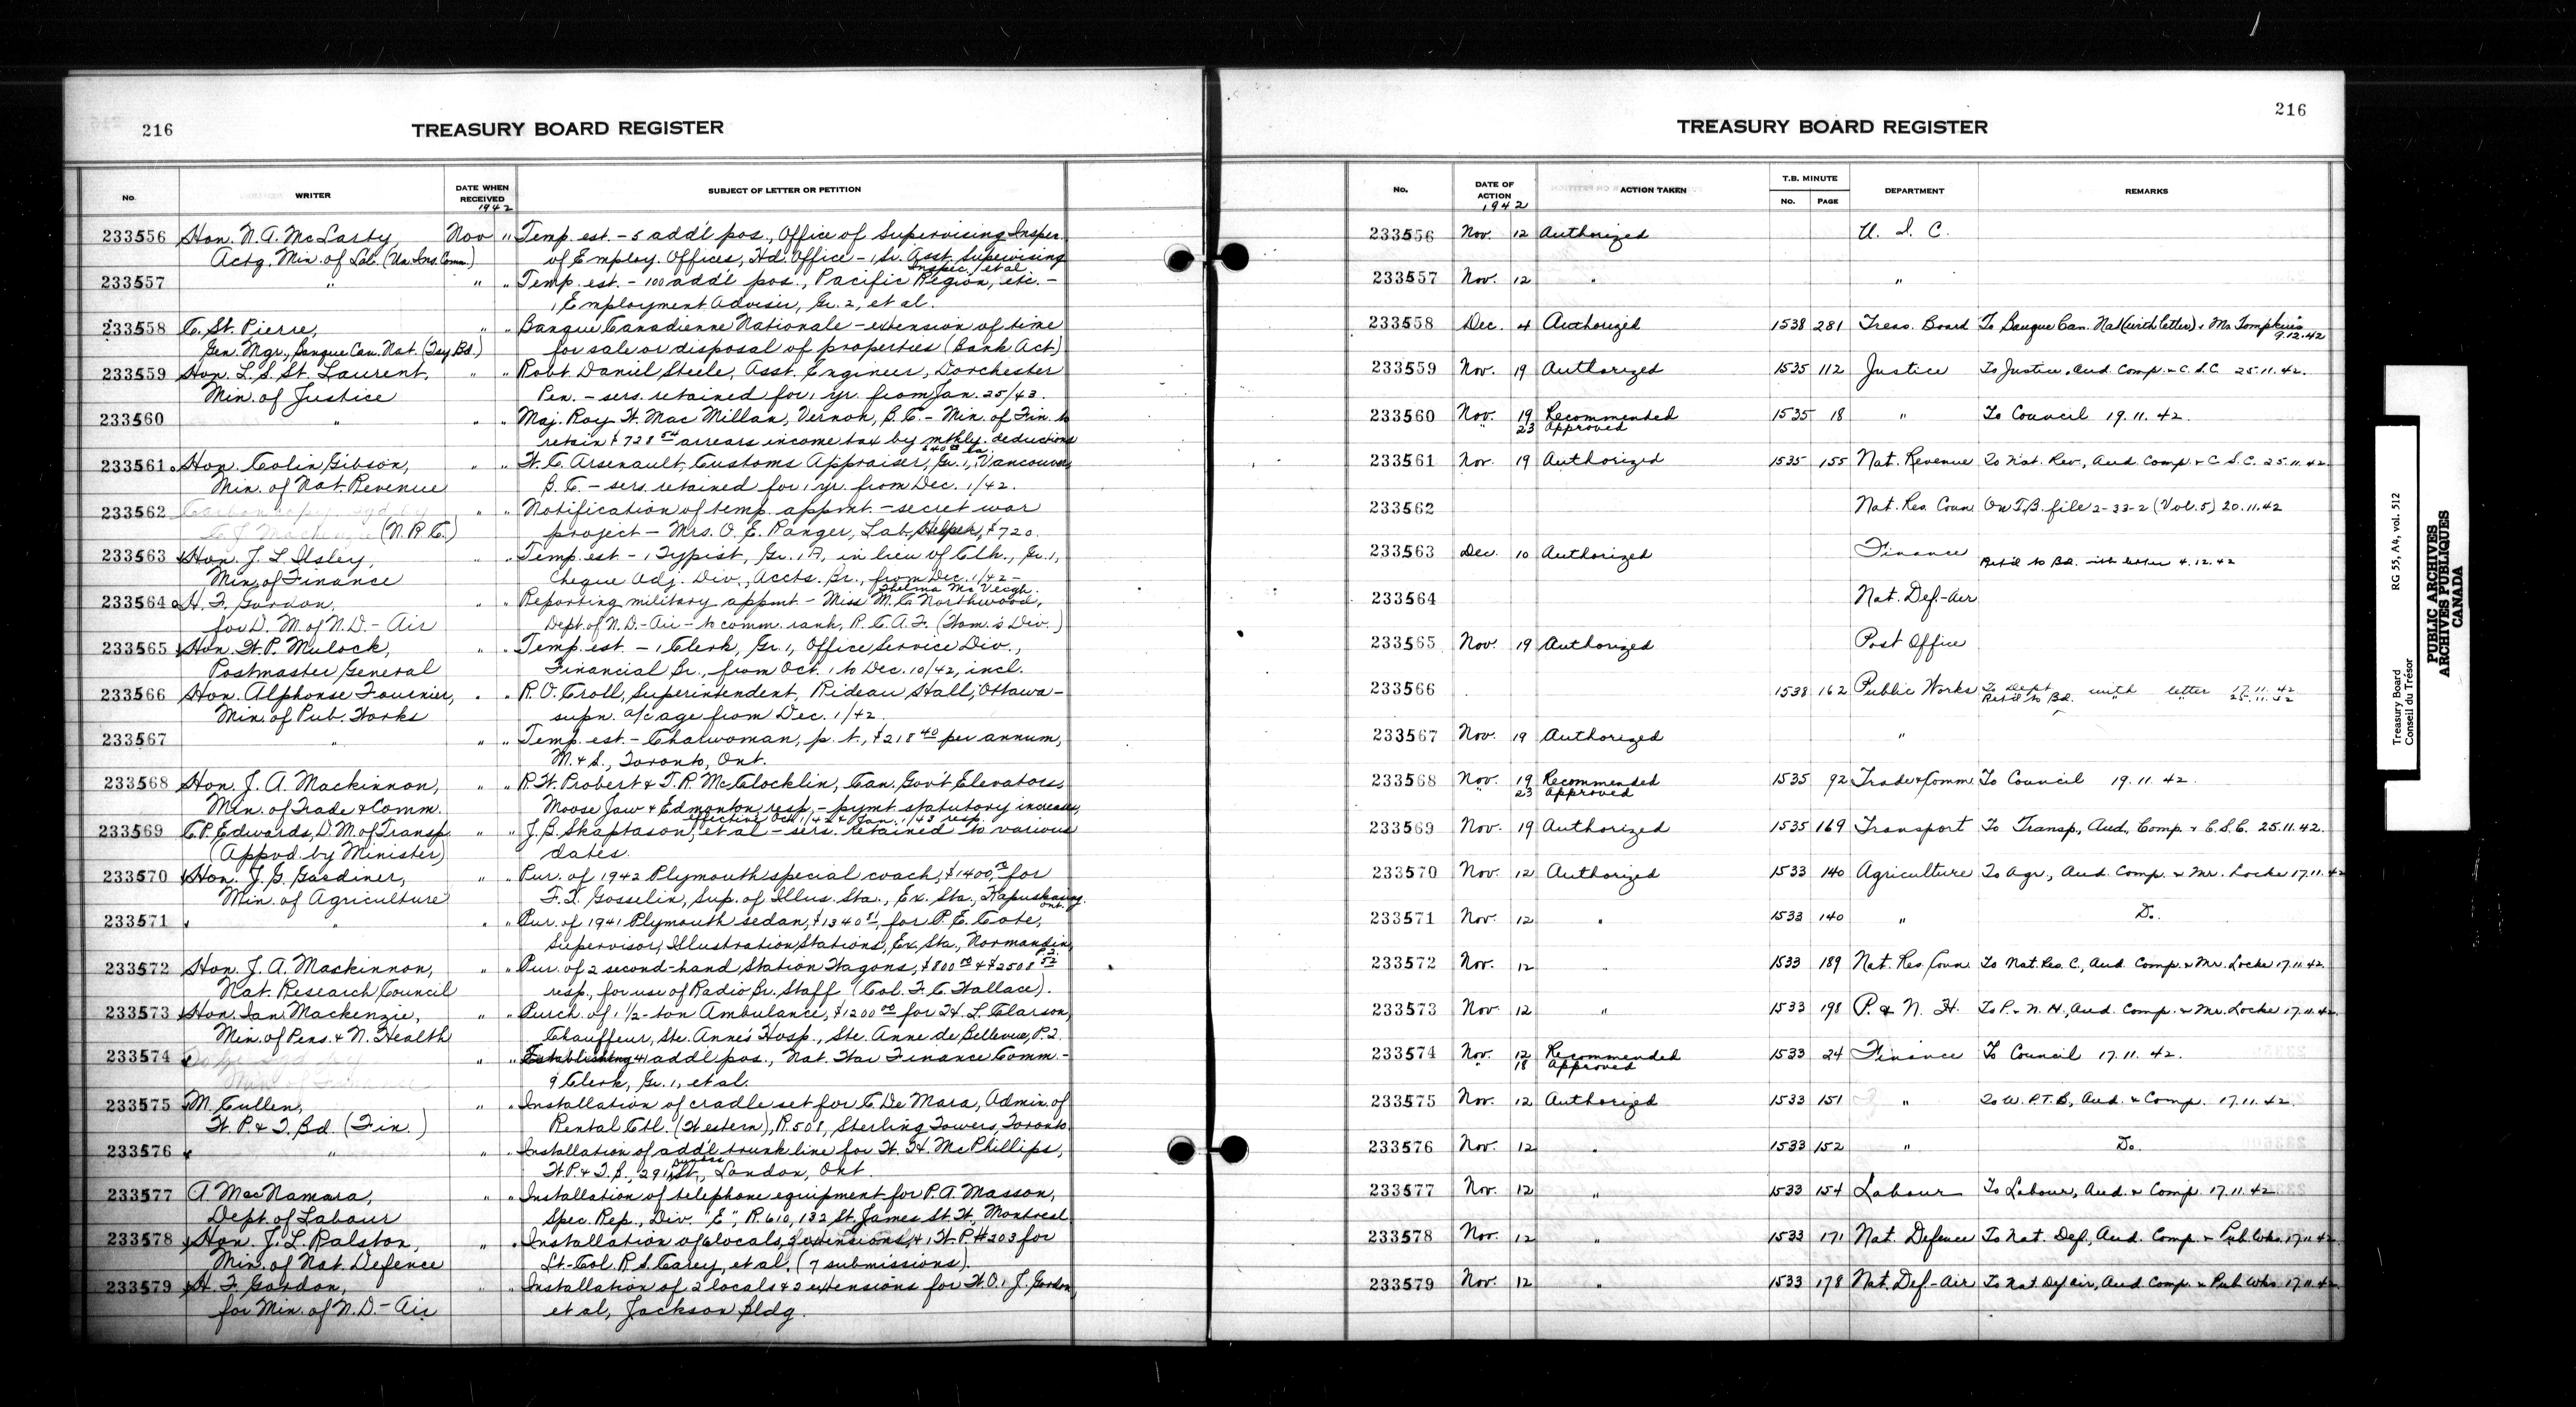 216
TREASURY BOARD REGISTER
No. WRITER DATE WHEN RECEIVED 1942 SUBJECT OF LETTER OR PETITION
233556 Hon. N. A. McLarty, Nov " Temp. est. - 5 add'l pos., Office of Supervising Insper.
Actg. Min. of Lab. (Un. Ins. Comm.) of Employ. Offices, Hd. Office - 1 Sr. Asst. Supervising
Inspec., et al
233557 " " " Temp. est. - 100 add'l pos., Pacific Region, etc. -
1 Employment Adviser, Gr. 2, et al.
233558 C. St. Pierre, " " Banque Canadienne Nationale - extension of time
Gen. Mgr., Banque Can. Nat. (Tsy Bd.) for sale or disposal of properties (Bank Act)
233559 Hon. L. S. St. Laurent, " " Robt. Daniel Steele, Asst. Engineer, Dorchester
Min. of Justice Pen. - sers. retained for 1 yr. from Jan. 25/43.
233560 " " " Maj. Roy W. MacMillan, Vernon, B.C. - Min. of Fin. to
retain $728 54 arrears income tax by mthly. deductions
$40 00 ea.
233561 Hon. Colin Gibson, " " W. C. Arsenault, Customs Appraiser, Gr. 1, Vancouver,
Min. of Nat. Revenue B.C. - sers. retained for 1 yr. from Dec. 1/42.
233562 " " Notification of temp. appmt. - secret war
(N.R.C.) project - Mrs. O. E. Panger, Lab. Helper, $720.
233563 Hon. J. L. Ilsley, " Temp. est - 1 Typist, Gr. 1A, in lieu of Clk., Gr. 1,
Min. of Finance Cheque Adj. Div., Accts. Br., from Dec. 1/42 -
Thelma McVeigh.
233564 H. F. Gordon, " " Reporting military appmt - Miss M. C. Northwood,
for D. M. of N.D. - Air Dept. of N.D. - Air - to comm. rank, R.C.A.F. (Wom.'s Div.)
233565 Hon. W. P. Mulock, " " Temp. est. - 1 Clerk, Gr. 1, Office Service Div.,
Postmaster General Financial Br., from Oct. 1 to Dec. 10/42, incl.
233566 Hon. Alphonse Fournier, " " R. O. Croll, Superintendent, Rideau Hall, Ottawa -
Min. of Pub. Works supn. a/c age from Dec. 1/42.
233567 " " " Temp. est. - Charwoman, p.t., $218 40 per annum,
M. & S., Toronto, Ont.
233568 Hon. J. A. Mackinnon, " " R. W. Probert & T. R. McClocklin, Can. Gov't Elevators,
Min. of Trade & Comm. Moose Jaw & Edmonton, resp. - pymt. statutory increases,
effective Oct. 1/42 & Jan. 1/43 resp.
233569 C. P. Edwards, D.M. of Transp. " " J. B. Skaptason, et al - sers. retained to various
(Appvd by Minister) dates.
233570 Hon. J. G. Gardiner, " " Pur. of 1942 Plymouth special coach, $1400 00 for
Min. of Agriculture F. X. Gosselin, Sup. of Illus. Sta., Ex. Sta., Kapuskasing
Ont.
233571 " " " Pur. of 1941 Plymouth sedan, $1340 81, for P. E. Cote,
Supervisor, Illustration Stations, Ex. Sta., Normandin,
P.2.
233572 Hon. J. A. Mackinnon, " " Pur. of 2 second-hand Station Wagons, $800 00 & $2508 52
Nat. Research Council resp., for use of Radio Br. Staff (Col. F. C. Wallace).
233573 Hon. Ian Mackenzie, " " Purch. of 1 1/2-ton Ambulance, $1200 00 for H. L. Clarson,
Min. of Pens. & N. Health Chauffeur, Ste. Anne's Hosp., Ste. Anne de Bellevue, P.2.
233574 " " Establishing 41 addl pos., Nat. War Finance Comm. -
9 Clerk, Gr. 1, et al.
233575 M. Cullen, " " Installation of cradle set for C. De Mara, Admin. of
W. P. & T. Bd. (Fin.) Rental Ctl. (Western), R. 508, Sterling Towers, Toronto
233576 " " " Installation of add'l trunk line for W. H. McPhillips,
W. P. & T. B., 291 St., London, Ont.
233577 A. MacNamara, " " Installation of telephone equipment for P. A. Masson,
Dept. of Labour Spec. Rep., Div. "E", R. 610, 132 St. James St. W., Montreal
233578 Hon. J. L. Ralston, " " Installation of 6 locals, 2 extensions, & 1 W. P. #203 for
Min. of Nat. Defence Lt-Col. R. S. Carey, et al, (7 submissions).
233579 H. F. Gordon, " " Installation of 2 locals & 2 extensions for W.O.1 J. Gordon,
for Min. of N.D. - Air et al, Jackson Bldg.
216
TREASURY BOARD REGISTER
No. DATE OF ACTION 1942 ACTION TAKEN T.B. MINUTE No. PAGE DEPARTMENT REMARKS
233556 Nov. 12 Authorized U. I. C.
233557 Nov. 12 " "
233558 Dec. 4 Authorized 1538 281 Treas. Board To Banque Can. Nat (with letter) & Mr. Tompkins
9.12.42
233559 Nov. 19 Authorized 1535 112 Justice To Justice, Aud. Comp. & C.S.C. 25.11.42.
233560 Nov. 19 Recommended 1535 18 " To Council 19.11.42.
" 23 Approved
233561 Nov. 19 Authorized 1535 155 Nat. Revenue To Nat. Rev., Aud. Comp. & C.S.C. 25.11.42.
233562 Nat. Res. Coun. On T.B. file 2-33-2 (Vol. 5) 20.11.42
233563 Dec. 10 Authorized Finance Ret'd to Bd. with letter 4.12.42
233564 Nat. Def.-Air
233565 Nov. 19 Authorized Post Office
233566 1538 162 Public Works To Dept. with letter 17.11.42
Ret'd to Bd. " " 25.11.42
233567 Nov. 19 Authorized "
233568 Nov. 19 Recommended 1535 92 Trade & Comm. To Council 19.11.42.
" 23 Approved
233569 Nov. 19 Authorized 1535 169 Transport To Transp., Aud., Comp. & C.S.C. 25.11.42.
233570 Nov. 12 Authorized 1533 140 Agriculture To Agr., Aud. Comp. & Mr. Locke 17.11.42
233571 Nov. 12 " 1533 140 " Do.
233572 Nov. 12 " 1533 189 Nat. Res. Coun. To Nat. Res. C., Aud. Comp. & Mr. Locke 17.11.42.
233573 Nov. 12 " 1533 198 P. & N. H. To P. & N. H., Aud. Comp. & Mr. Locke 17.11.42.
233574 Nov. 12 Recommended 1533 24 Finance To Council 17.11.42.
" 18 Approved
233575 Nov. 12 Authorized 1533 151 " To W.P.T.B., Aud. & Comp. 17.11.42.
233576 Nov. 12 " 1533 152 " Do.
233577 Nov. 12 " 1533 154 Labour To Labour, Aud. & Comp. 17.11.42
233578 Nov. 12 " 1533 171 Nat. Defence To Nat. Def., Aud. Comp. & Pub. Wks. 17.11.42
233579 Nov. 12 " 1533 178 Nat. Def-Air To Nat Def air, Aud. Comp. & Pub Wks 17.11.42.
Treasury Board RG 55, A4, vol. 512
Conseil du Trésor
PUBLIC ARCHIVES
ARCHIVES PUBLIQUES
CANADA